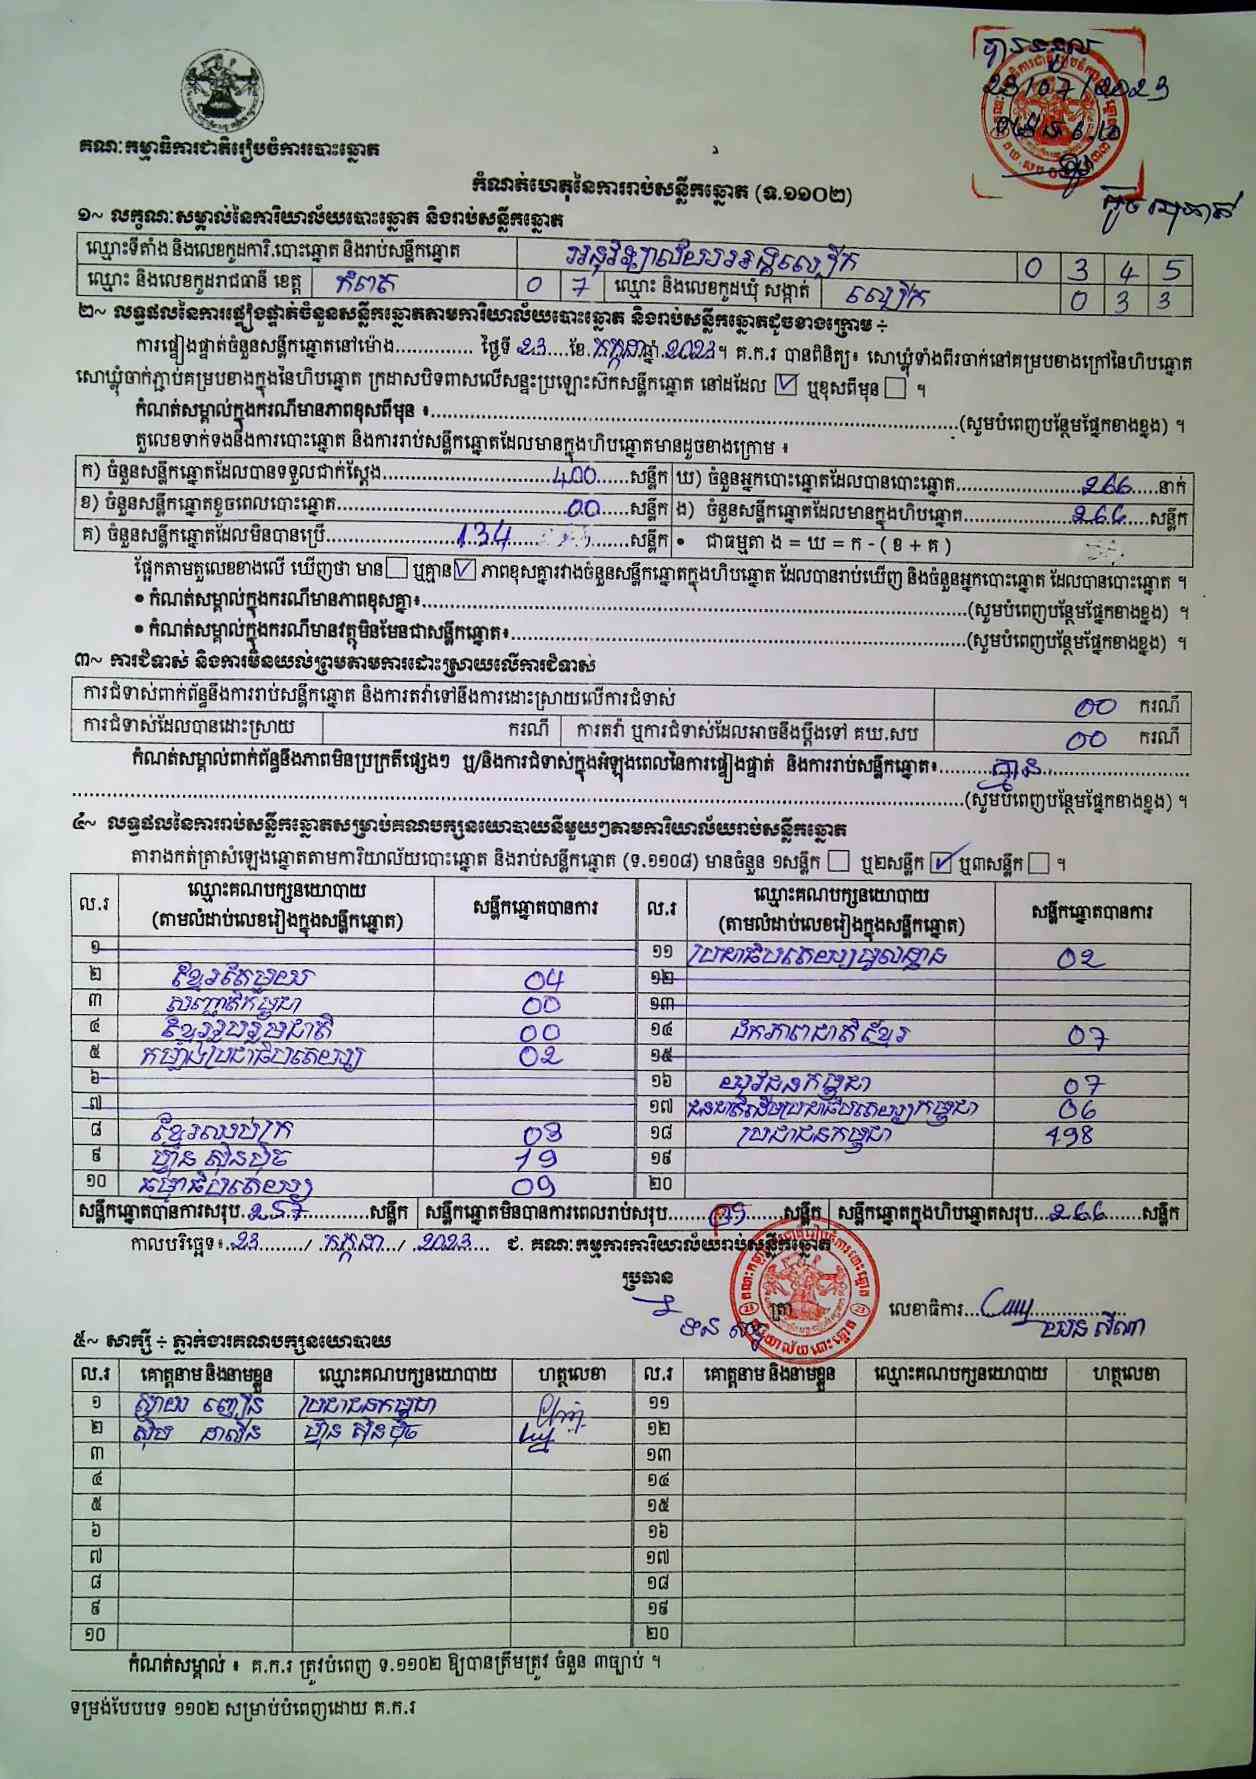 បានទទួល
23/07/2023
គណៈកម្មាធិការជាតិរៀបចំការបោះឆ្នោត
កំណត់ហេតុនៃការរាប់សន្លឹកឆ្នោត (ទ.១១០២)
១~ លក្ខណៈសម្គាល់នៃការិយាល័យបោះឆ្នោត និងរាប់សន្លឹកឆ្នោត
ឈ្មោះទីតាំង និងលេខកូដការិ.បោះឆ្នោត និងរាប់សន្លឹកឆ្នោត អនុវិទ្យាល័យ 0 3 4 5
ឈ្មោះ និងលេខកូដរាជធានី ខេត្ត កំពត 0 7 ឈ្មោះ និងលេខកូដឃុំ សង្កាត់ ល្បើក 0 3 3
២~ លទ្ធផលនៃការផ្ទៀងផ្ទាត់ចំនួនសន្លឹកឆ្នោតតាមការិយាល័យបោះឆ្នោត និងរាប់សន្លឹកឆ្នោតដូចខាងក្រោម ÷
ការផ្ទៀងផ្ទាត់ចំនួនសន្លឹកឆ្នោតនៅម៉ោង............. ថ្ងៃទី 23....ខែ.កក្កដា ឆ្នាំ.2023។ គ.ក.រ បានពិនិត្យ៖ សោឃ្លុំទាំងពីរចាក់នៅគម្របខាងក្រៅនៃហិបឆ្នោត
សោឃ្លុំចាក់ភ្ជាប់គម្របខាងក្នុងនៃហិបឆ្នោត ក្រដាសបិទពាសលើសន្ទះប្រឡោះស៊កសន្លឹកឆ្នោត នៅដដែល ☑ ឬខុសពីមុន ☐ ។
កំណត់សម្គាល់ក្នុងករណីមានភាពខុសពីមុន ៖......(សូមបំពេញបន្ថែមផ្នែកខាងខ្នង) ។
តួលេខទាក់ទងនឹងការបោះឆ្នោត និងការរាប់សន្លឹកឆ្នោតដែលមានក្នុងហិបឆ្នោតមានដូចខាងក្រោម ៖
ក) ចំនួនសន្លឹកឆ្នោតដែលបានទទួលជាក់ស្តែង......400......សន្លឹក ឃ) ចំនួនអ្នកបោះឆ្នោតដែលបានបោះឆ្នោត......266.....នាក់
ខ) ចំនួនសន្លឹកឆ្នោតខូចពេលបោះឆ្នោត......00......សន្លឹក ង) ចំនួនសន្លឹកឆ្នោតដែលមានក្នុងហិបឆ្នោត......266.....សន្លឹក
គ) ចំនួនសន្លឹកឆ្នោតដែលមិនបានប្រើ......134......សន្លឹក • ជាធម្មតា ង = ឃ = ក - ( ខ + គ )
ផ្អែកតាមតួលេខខាងលើ ឃើញថា មាន ☐ ឬគ្មាន ☑ ភាពខុសគ្នារវាងចំនួនសន្លឹកឆ្នោតក្នុងហិបឆ្នោត ដែលបានរាប់ឃើញ និងចំនួនអ្នកបោះឆ្នោត ដែលបានបោះឆ្នោត ។
• កំណត់សម្គាល់ក្នុងករណីមានភាពខុសគ្នា៖......(សូមបំពេញបន្ថែមផ្នែកខាងខ្នង) ។
• កំណត់សម្គាល់ក្នុងករណីមានវត្ថុមិនមែនជាសន្លឹកឆ្នោត៖......(សូមបំពេញបន្ថែមផ្នែកខាងខ្នង) ។
៣~ ការជំទាស់ និងការមិនយល់ព្រមតាមការដោះស្រាយលើការជំទាស់
ការជំទាស់ពាក់ព័ន្ធនឹងការរាប់សន្លឹកឆ្នោត និងការតវ៉ាទៅនឹងការដោះស្រាយលើការជំទាស់ 00 ករណី
ការជំទាស់ដែលបានដោះស្រាយ ករណី ការតវ៉ា ឬការជំទាស់ដែលអាចនឹងប្តឹងទៅ គឃ.សប 00 ករណី
កំណត់សម្គាល់ពាក់ព័ន្ធនឹងភាពមិនប្រក្រតីផ្សេងៗ ឬ/និងការជំទាស់ក្នុងអំឡុងពេលនៃការផ្ទៀងផ្ទាត់ និងការរាប់សន្លឹកឆ្នោត៖.........គ្មាន......
......(សូមបំពេញបន្ថែមផ្នែកខាងខ្នង) ។
៤~ លទ្ធផលនៃការរាប់សន្លឹកឆ្នោតសម្រាប់គណបក្សនយោបាយនីមួយៗតាមការិយាល័យរាប់សន្លឹកឆ្នោត
តារាងកត់ត្រាសំឡេងឆ្នោតតាមការិយាល័យបោះឆ្នោត និងរាប់សន្លឹកឆ្នោត (ទ.១១០៨) មានចំនួន ១សន្លឹក ☐ ឬ២សន្លឹក ☑ ឬ៣សន្លឹក ☐ ។
ល.រ ឈ្មោះគណបក្សនយោបាយ (តាមលំដាប់លេខរៀងក្នុងសន្លឹកឆ្នោត) សន្លឹកឆ្នោតបានការ ល.រ ឈ្មោះគណបក្សនយោបាយ (តាមលំដាប់លេខរៀងក្នុងសន្លឹកឆ្នោត) សន្លឹកឆ្នោតបានការ
១ ១១ ប្រជាធិបតេយ្យមូលដ្ឋាន 02
២ ខ្មែរតែមួយ 04 ១២
៣ សញ្ជាតិកម្ពុជា 00 ១៣
៤ ខ្មែររួបរួមជាតិ 00 ១៤ ឯកភាពជាតិខ្មែរ 07
៥ កម្លាំងប្រជាធិបតេយ្យ 02 ១៥
៦ ១៦ យុវជនកម្ពុជា 07
៧ ១៧ ជនជាតិដើមប្រជាធិបតេយ្យកម្ពុជា 06
៨ ខ្មែរឈប់ក្រ 03 ១៨ ប្រជាជនកម្ពុជា 198
៩ ហ្វ៊ុនស៊ិនប៉ិច 19 ១៩
១០ ធម្មាធិបតេយ្យ 09 ២០
សន្លឹកឆ្នោតបានការសរុប.257...........សន្លឹក សន្លឹកឆ្នោតមិនបានការពេលរាប់សរុប.......09......សន្លឹក សន្លឹកឆ្នោតក្នុងហិបឆ្នោតសរុប...266......សន្លឹក
កាលបរិច្ឆេទ៖.23......../.កក្កដា.../.2023.... ជ. គណៈកម្មការការិយាល័យរាប់សន្លឹកឆ្នោត
ប្រធាន
ត្រា លេខាធិការ
៥~ សាក្សី ÷ ភ្នាក់ងារគណបក្សនយោបាយ
ល.រ គោត្តនាម និងនាមខ្លួន ឈ្មោះគណបក្សនយោបាយ ហត្ថលេខា ល.រ គោត្តនាម និងនាមខ្លួន ឈ្មោះគណបក្សនយោបាយ ហត្ថលេខា
១ ស្វាយ ញឿន ប្រជាជនកម្ពុជា ១១
២ ស៊ុម ហ្វ៊ុនស៊ិនប៉ិច ១២
៣ ១៣
៤ ១៤
៥ ១៥
៦ ១៦
៧ ១៧
៨ ១៨
៩ ១៩
១០ ២០
កំណត់សម្គាល់ ៖ គ.ក.រ ត្រូវបំពេញ ទ.១១០២ ឱ្យបានត្រឹមត្រូវ ចំនួន ៣ច្បាប់ ។
ទម្រង់បែបបទ ១១០២ សម្រាប់បំពេញដោយ គ.ក.រ